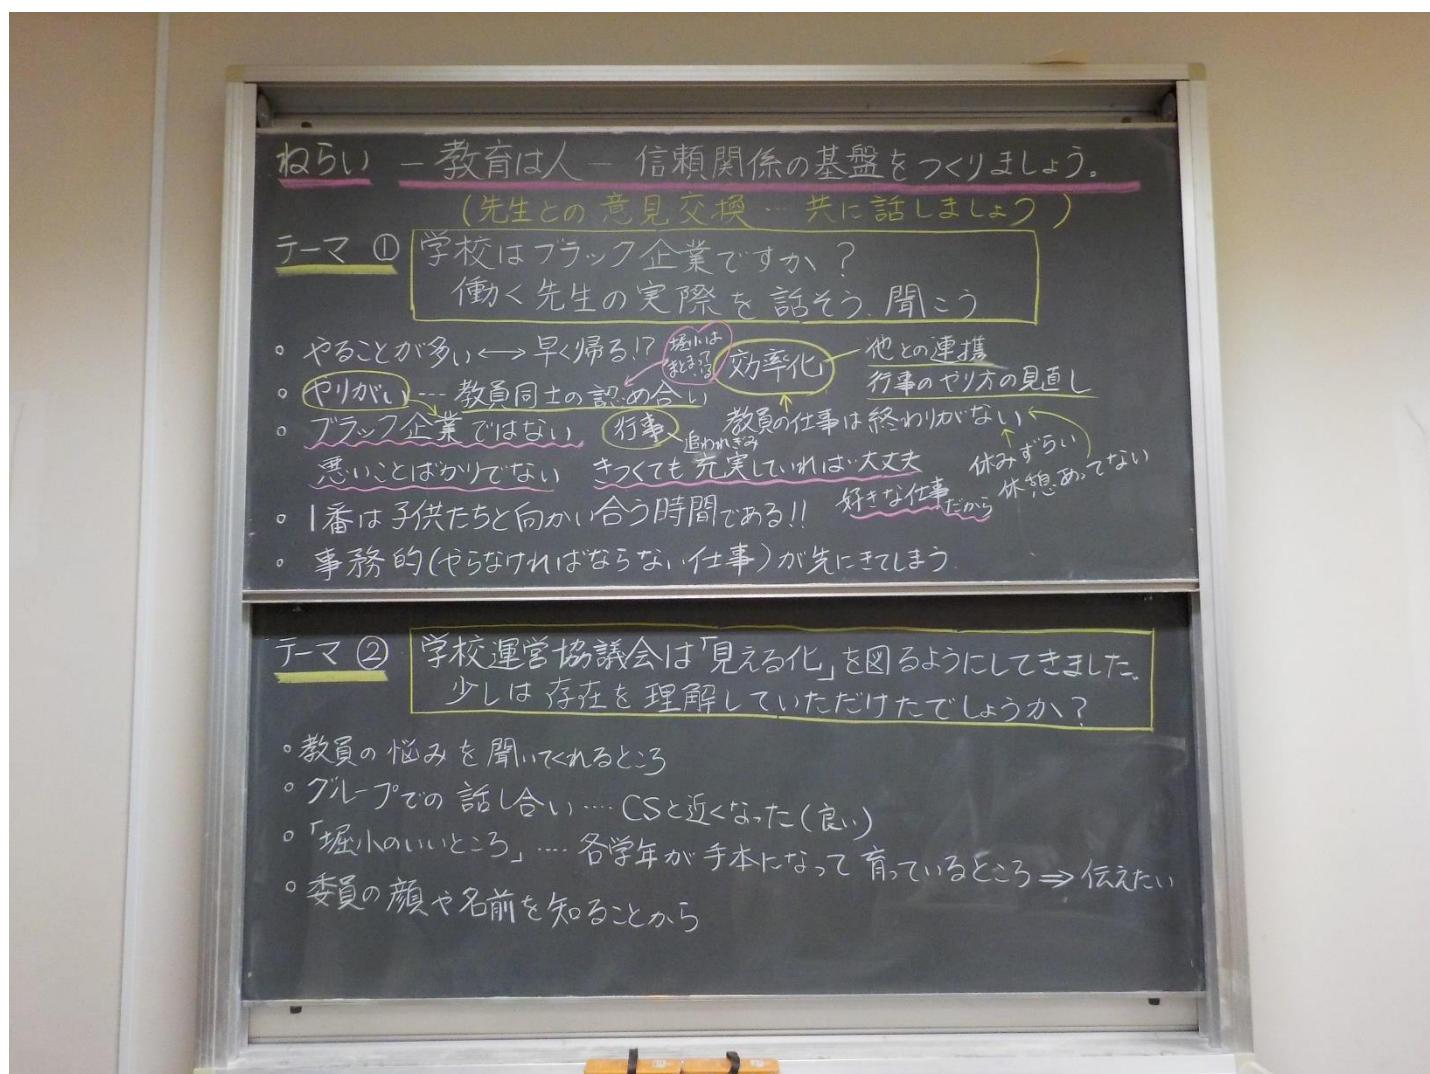 ねらい －教育は人－ 信頼関係の基盤をつくりましょう。
(先生との意見交換…共に話しましょう)
テーマ ① 学校はブラック企業ですか?
働く先生の実際を話そう、聞こう
◦ やることが多い ⟷ 早く帰る!?
堀小は
まとまってる
効率化
他との連携
行事のやり方の見直し
◦ やりがい … 教員同士の認め合い
◦ ブラック企業ではない
行事
追われぎみ
教員の仕事は終わりがない
休みずらい
休憩あってない
悪いことばかりでない きつくても充実していれば大丈夫
好きな仕事だから
◦ 1番は子供たちと向かい合う時間である!!
◦ 事務的(やらなければならない仕事)が先にきてしまう
テーマ ② 学校運営協議会は「見える化」を図るようにしてきました。
少しは存在を理解していただけたでしょうか?
◦ 教員の悩みを聞いてくれるところ
◦ グループでの話し合い‥‥CSと近くなった(良い)
◦ 「堀小のいいところ」‥‥各学年が手本になって育っているところ⇒伝えたい
◦ 委員の顔や名前を知ることから